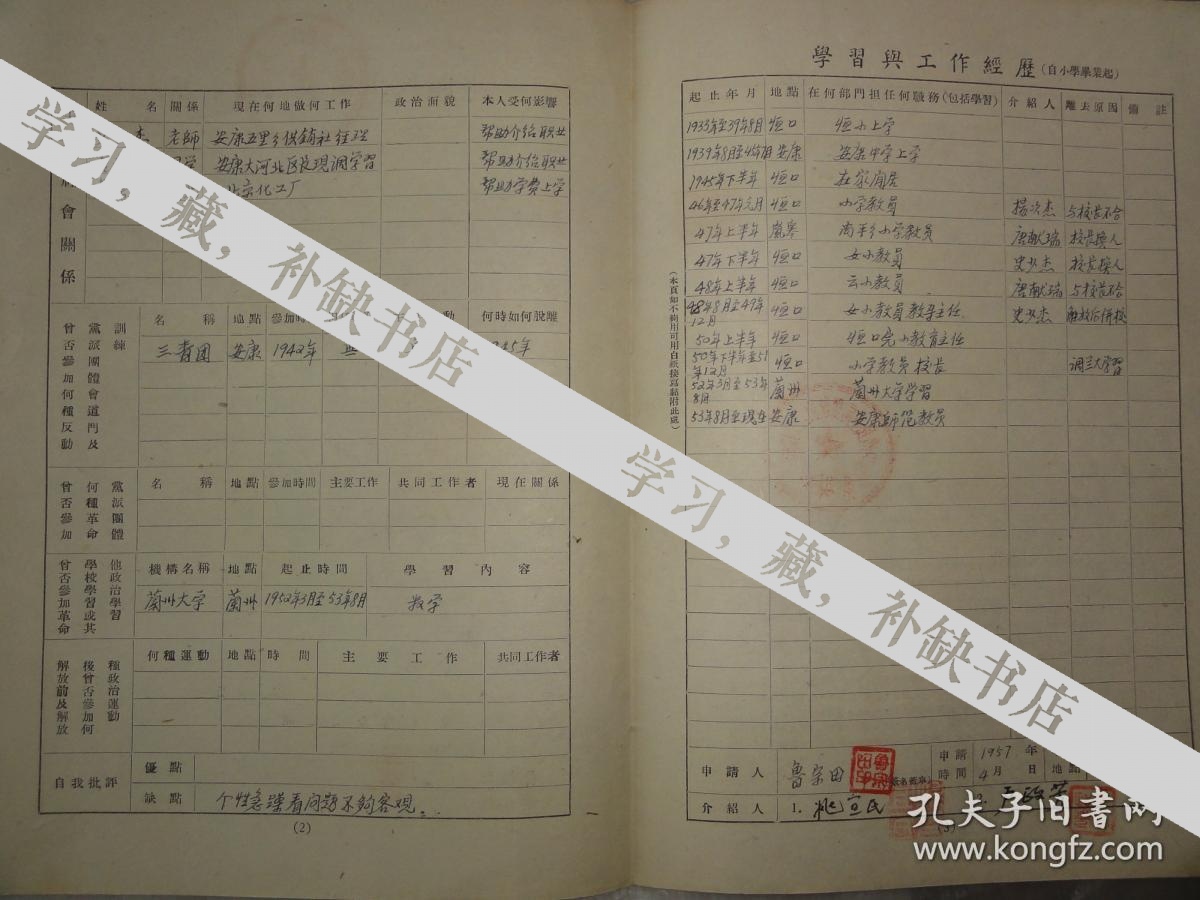 姓 名 關係 現在何地做何工作 政治面貌 本人受何影響
老師 安康五里乡供銷社经理 帮助介绍职业
安康大河北区 現调学習 帮助介绍职业
北京化工厂 帮助学费上学
會關係
曾否參加何種反動黨派團體會道門及訓練
名 稱 地點 參加時間 何時如何脫離
三青团 安康 1942年
曾否參加何種革命黨派團體
名 稱 地點 參加時間 主要工作 共同工作者 現在關係
曾否參加革命學校學習或其他政治學習
機構名稱 地點 起止時間 學習內容
蘭州大学 蘭州 1952年3月至53年8月 数学
解放前及解放後曾否參加何種政治運動
何種運動 地點 時間 主要工作 共同工作者
自我批評 優點
缺點 个性急 看问题不夠客观。
(2)
學習與工作經歷(自小學畢業起)
起止年月 地點 在何部門担任何職務(包括學習) 介紹人 離去原因 備註
1933年至39年8月 恒口 恒小上学
1939年8月至 安康 安康中学上学
1945年下半年 恒口 在家闲居
46年至47年元月 恒口 小学教員 楊次杰 与校长不合
47年上半年 嵐皋 小学教员 唐献瑞 校长换人
47年下半年 恒口 女小教員 史少杰 校长换人
48年上半年 恒口 云小教員 唐献瑞 与校长不合
48年8月至49年12月 恒口 女小教員教导主任 史少杰 解放后併校
50年上半年 恒口 恒口完小教育主任
50年下半年至51年12月 恒口 小学教員 校长 调兰大学習
52年3月至53年8月 蘭州 蘭州大学学習
53年8月至現在 安康 安康師范教员
(本頁如不夠用可用白紙接寫黏附此處)
申請人 魯宗田 申請時間 1957年4月 日 地點
介紹人 1. 姚宣民 2.
(3)
学习，藏，补缺书店
学习，藏，补缺书店
孔夫子旧书网
www.kongfz.com